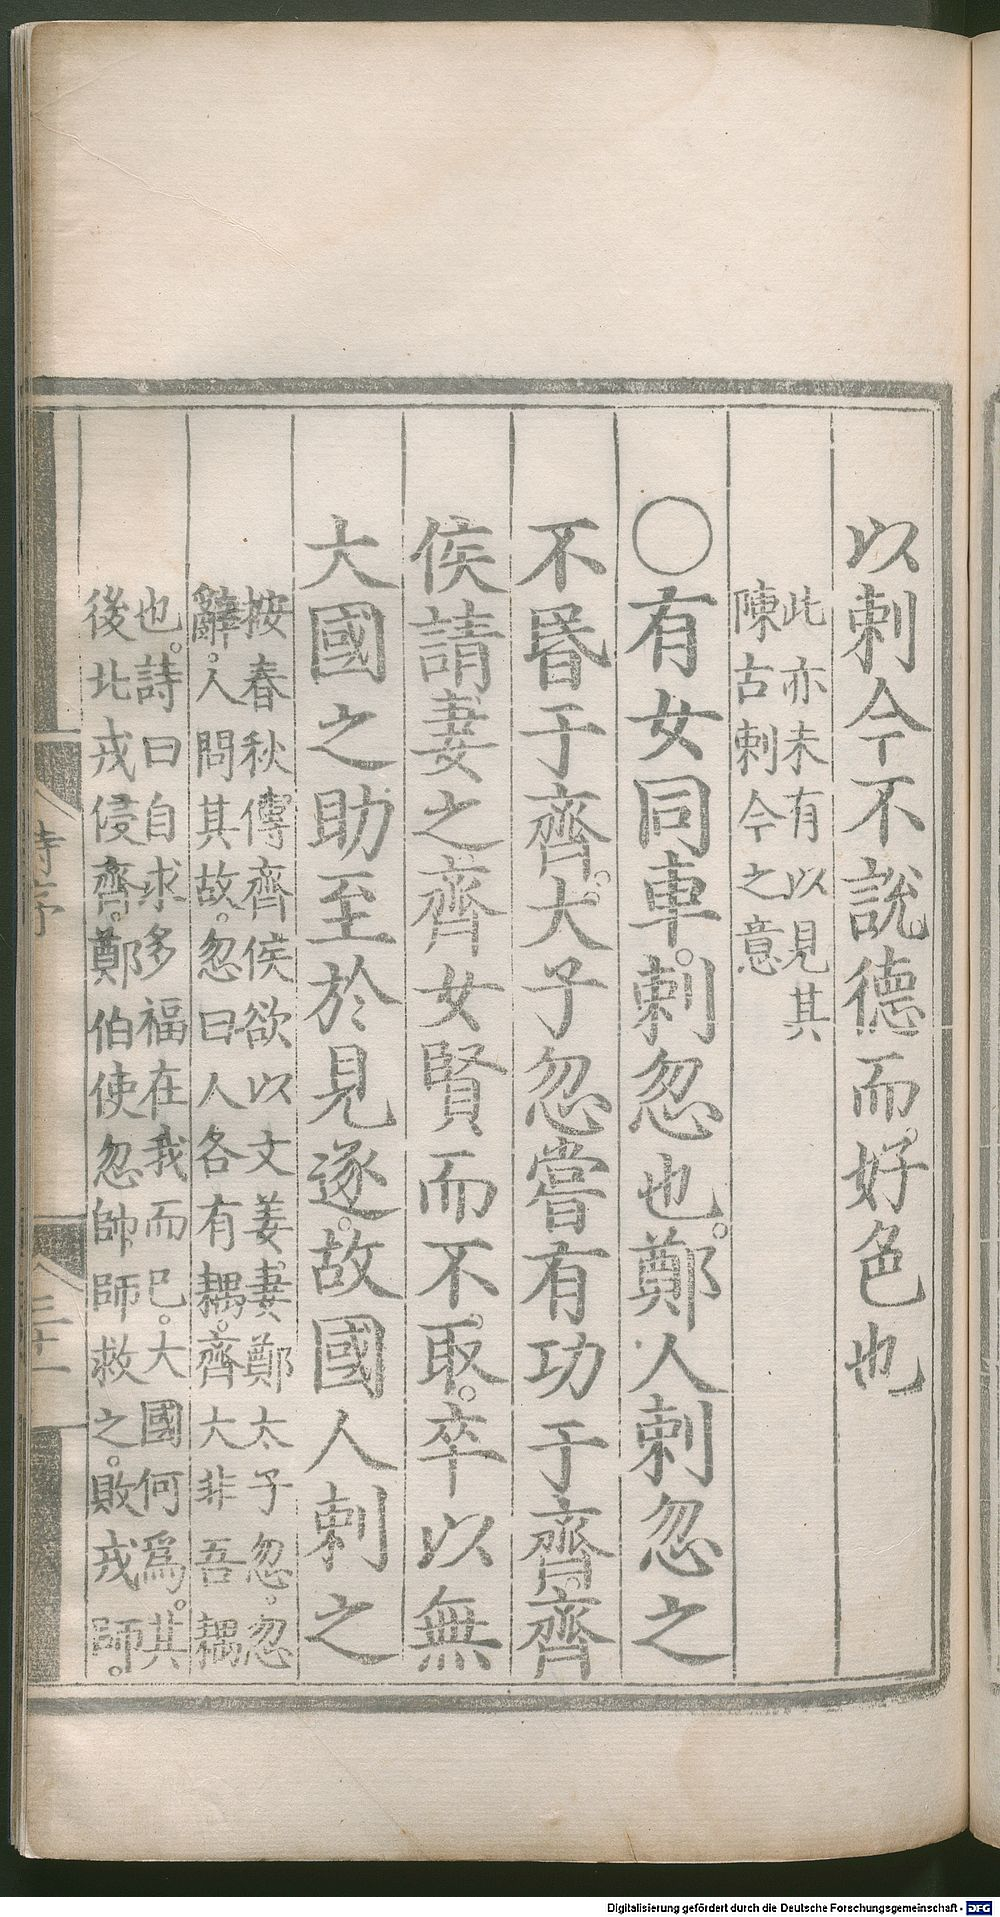 以刺今不說德而好色也
此亦未有以見其
陳古刺今之意
○有女同車。刺忽也。鄭人刺忽之
不昬于齊。大子忽嘗有功于齊。齊
侯請妻之齊女賢而不取。卒以無
大國之助至於見逐。故國人刺之
按春秋傳齊侯欲以文姜妻鄭太子忽。忽
辭。人問其故。忽曰人各有耦。齊大非吾耦
也。詩曰自求多福在我而已。大國何爲。其
後北戎侵齊。鄭伯使忽帥師救之。敗戎師。
詩序
三十一
Digitalisierung gefördert durch die Deutsche Forschungsgemeinschaft - DFG